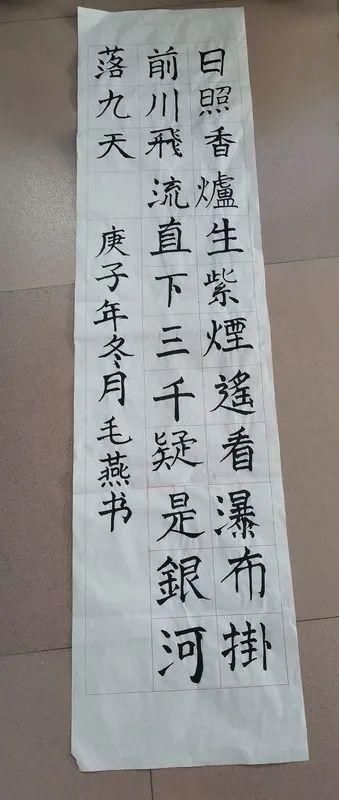 日照香爐生紫煙遙看瀑布掛
前川飛流直下三千疑是銀河
落九天
庚子年冬月毛燕书